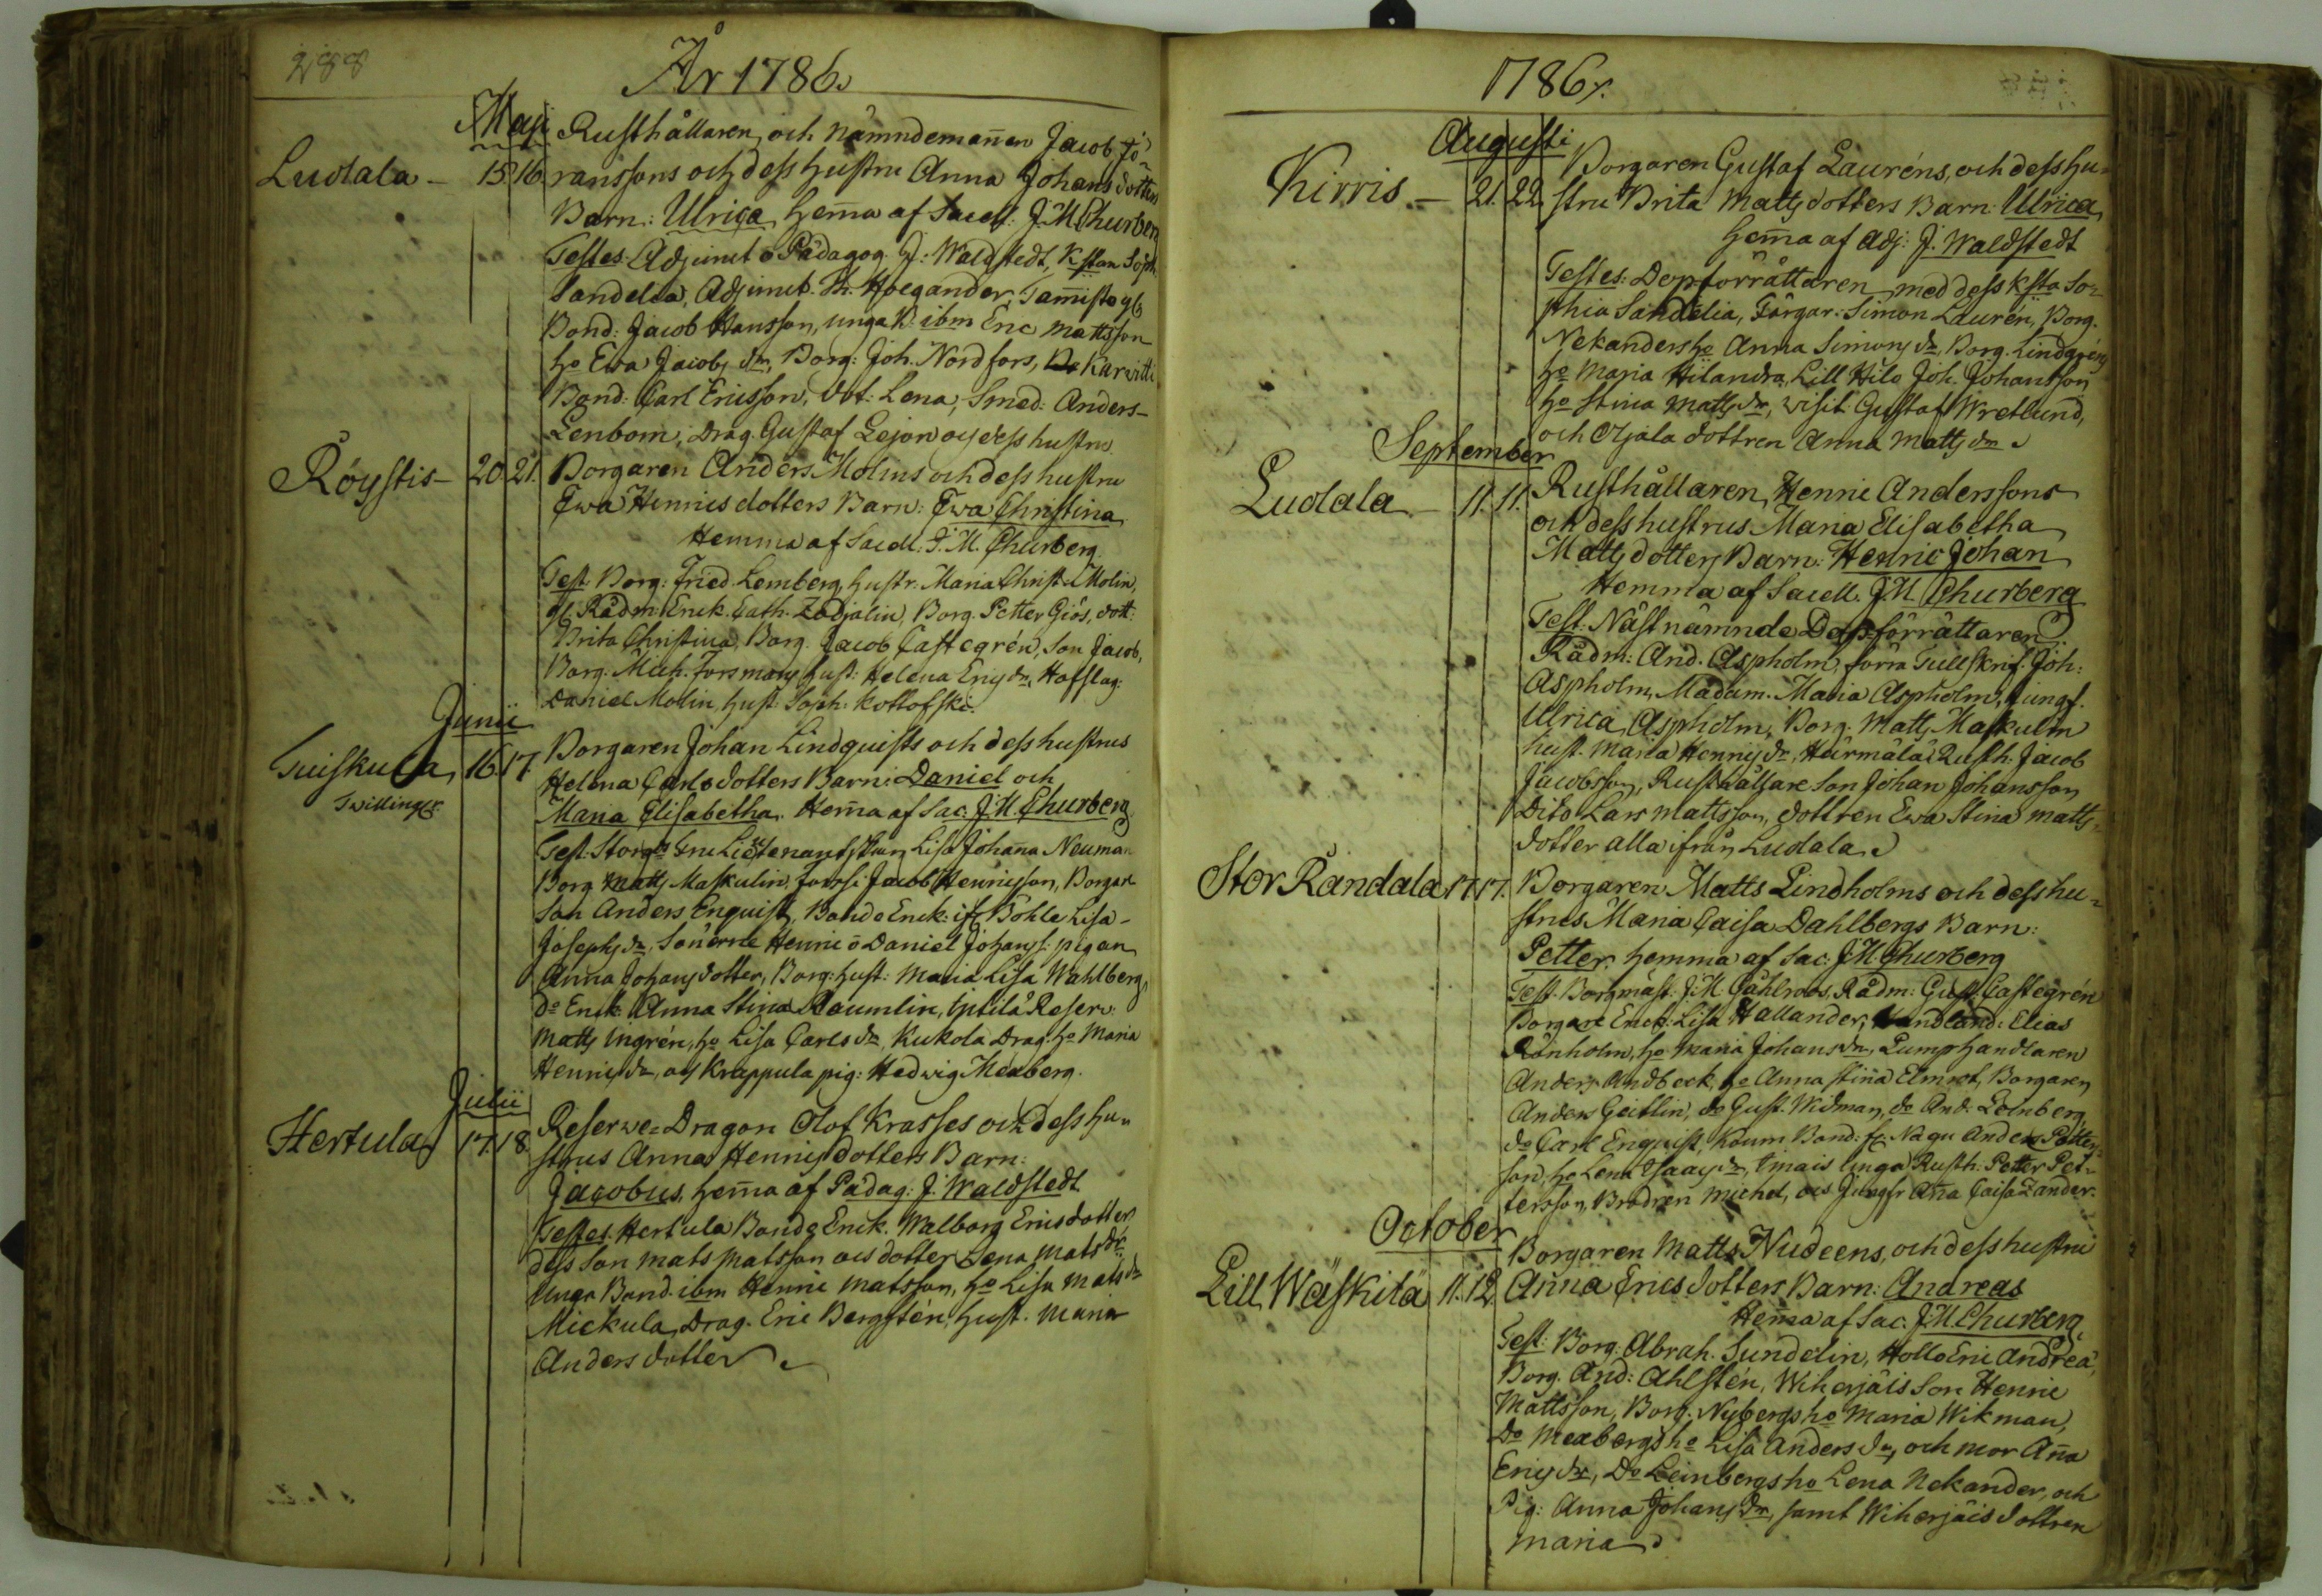 288
År 1786.
Maji
Rusthållaren och nämndemannen Jacob Jö-
Ludala - 15. 16. ranssons och dess hustru Anna Johans dotters
Barn: Ulrica, hemma af Sacell: J. M. Churberg
Testes: Adjunct o Pädagog. J: Waldstedt, K:stan Soph.
Sandelia, Adjunct. Hoegander,
Bond: Jacob Hansson, unga B. ibm Eric Mattsson
ho Ewa Jacobs dr, Borg: Joh. Nordfors, Karvitti
Bond: Carl Ericsson, dot: Lena, Smed: Anders
Lenbom, Drag. Gustaf Lejon och dess hustru
Röystis - 20. 21. Borgaren Anders Molins och dess hustru
Ewa Henrics dotters Barn: Ewa Christina
Hemma af Sacell: J. M. Churberg.
Test. Borg: Fried. Lemberg, hustr. Maria Christ. Molin,
Rådm: Enck. Cath. Borg. Petter Giös, dott:
Brita Christina, Borg. Jacob Castegrén, Son Jacob,
Borg. Mich. Forsmans hust: Helena Erics dr, Hofslag:
Daniel Molin, hust: Soph: Kottofski.
Junii
Tuiskula, 16. 17. Borgaren Johan Lindquists och dess hustrus
Twillingr. Helena Carls dotters Barn: Daniel och
Maria Elisabetha. Hemma af Sac. J. M. Churberg
Test. Lisa Johanna Neuman
Borg. Matts Maskulin, Jacob Henricsson, Borgare
Son Anders Enquist, Bonde Enck: Böhle Lisa
Josephs dr, Sönerne Henric o Daniel Johanss: pigan
Anna Johans dotter, Borg: hust: Maria Lisa Wahlberg,
do Enck: Anna Stina Reserv:
Matts Ingrén, ho Lisa Carls dr, Kukola Drag. ho Maria
Henrics dr, och Krappula pig: Hedwig Mexberg.
Julii
Hertula 17. 18. Reserwe=Dragon Olof Krasses och dess hu-
strus Anna Henrics dotters Barn:
Jacobus, hemma af Pädag: J. Waldstedt
Testes. Hertula Bonde Enck. Walborg Erics dotter,
dess Son Mats Matsson och dotter Lena Mats dr
Unga Bond. ibm Henric Matsson, ho Lisa Mats dr
Mickula Drag. Eric Bergstén, hust. Maria
Anders dotter.
1786.
Augusti
Borgaren Gustaf Lauréns, och dess hu-
Kirris. - 21. 22. stru Brita Matts dotters Barn: Ulrica,
Hemma af Adj: J. Waldstedt
Testes: Dopförrättaren med dess K:sta So-
phia Sandelia, Färgar: Simon Laurén, Borg.
Nekanders ho Anna Simons dr, Borg. Lindgréns
ho Maria Hilandra, Lill Hilo Joh. Johansson
ho Stina Matts dr, Visit. Gustaf Wretlund,
och Ojala dottren Anna Matts dr.
September
Ludala - 11. 11. Rusthållaren Henric Anderssons
och dess hustrus Maria Elisabetha
Matts dotters Barn: Henric Johan
Hemma af Sacell. J. M. Churberg
Test: Nästnämnde Dopförrättaren
Rådm: And. Aspholm, förra Tullskrif. Joh:
Aspholm, Madam. Maria Aspholm, Jungf.
Ulrica Aspholm, Borg. Matts Maskulin
hust. Maria Henrics dr, Heirmälä Rusth: Jacob
Jacobsson, Rusthållare Son Johan Johansson
Dito Lars Mattsson, dottren Ewa Stina Matts-
dotter alla ifrån Ludala.
Stor Rändälä 17. 17. Borgaren Matts Lindholms och dess hu-
strus Maria Caisa Dahlbergs Barn:
Petter. hemma af Sac: J. M. Churberg
Test. Borgmäst: J. M. Rådm: Gust: Castegrén
Borgare Enck: Lisa Hallander, Handland: Elias
Rönholm, ho Maria Johans dr, Lumphandlaren
Anders Andbeck, ho Anna Stina Elmrot, Borgaren
Anders Geitlin, do Gust. Widman, do And. Leinberg
do Carl Enquist, Bond: fr: Nagu Anders Petters
son, ho Lena Isaacs dr, Unga Rusth: Petter Pet-
tersson, Brodren Michel, och Jungfr Anna Caisa Zander.
October
Borgaren Matts Nudeens, och dess hustru
Lill Wäskilä 11. 12. Anna Erics dotters Barn: Andreas
Hemma af Sac. J. M. Churberg,
Test: Borg. Abrah. Sundelin, Hollo Eric Andrea,
Borg. And: Ahlstén, Wiherjäis Son Henric
Mattsson, Borg. Nybergs ho Maria Wikman,
Do Mexbergs ho Lisa Anders dr, och mor Anna
Erics dr, Do Leinbergs ho Lena Nekander, och
Pig: Anna Johans dr, samt Wiherjäis dottren
Maria.